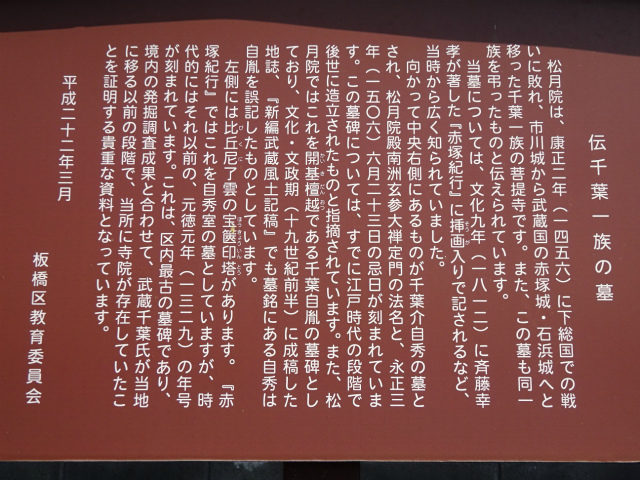 伝千葉一族の墓
松月院は、康正二年(一四五六)に下総国での戦
いに敗れ、市川城から武蔵国の赤塚城・石浜城へと
移った千葉一族の菩提寺です。また、この墓も同一
族を弔ったものと伝えられています。
当墓については、文化九年(一八一二)に斉藤幸
孝が著した『赤塚紀行』に挿画入りで記されるなど、
当時から広く知られていました。
向かって中央右側にあるものが千葉介自秀の墓と
され、松月院殿南洲玄参大禅定門の法名と、永正三
年(一五〇六)六月二十三日の忌日が刻まれていま
す。この墓碑については、すでに江戸時代の段階で
後世に造立されたものと指摘されています。また、松
月院ではこれを開基檀越である千葉自胤の墓碑とし
ており、文化・文政期(十九世紀前半)に成稿した
地誌、『新編武蔵風土記稿』でも墓銘にある自秀は
自胤を誤記したものとしています。
左側には比丘尼了雲の宝篋印塔があります。『赤
塚紀行』ではこれを自秀室の墓としていますが、時
代的にはそれ以前の、元徳元年(一三二九)の年号
が刻まれています。これは、区内最古の墓碑であり、
境内の発掘調査成果と合わせて、武蔵千葉氏が当地
に移る以前の段階で、当所に寺院が存在していたこ
とを証明する貴重な資料となっています。
平成二十二年三月
板橋区教育委員会